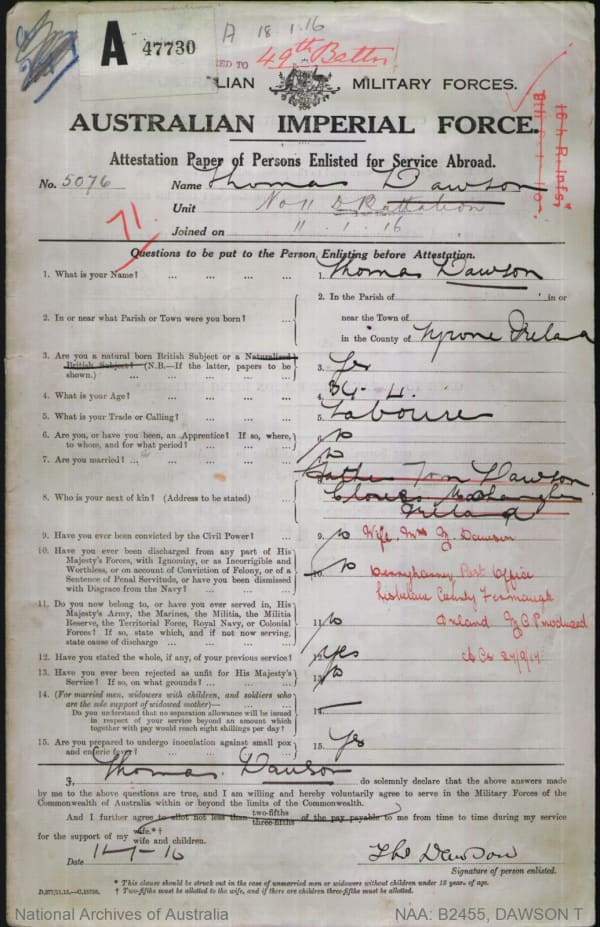 A 18 1.16
A 47730
ED TO 49th Battn
LIAN MILITARY FORCES.
AUSTRALIAN IMPERIAL FORCE.
Attestation Paper of Persons Enlisted for Service Abroad.
No. 5076 Name Thomas Dawson
Unit No 11 D Battalion
71.
Joined on 11.1.16
Questions to be put to the Person Enlisting before Attestation.
1. What is your Name? ... ... ... ... 1. Thomas Dawson
2. In or near what Parish or Town were you born? ...
2. In the Parish of in or
near the Town of
in the County of Tyrone Ireland
3. Are you a natural born British Subject or a Naturalised
British Subject? (N.B.—If the latter, papers to be
shown.) ... ... ... ... ... 3. Yes
4. What is your Age? ... ... ... ... 4. 34 - 4.
5. What is your Trade or Calling? ... ... ... 5. Labourer
6. Are you, or have you been, an Apprentice? If so, where,
to whom, and for what period? ... ... ... 6. No
7. Are you married? ... ... ... ... 7. No
8. Who is your next of kin? (Address to be stated) ...
Father Tom Dawson
Clones
Ireland
9. Have you ever been convicted by the Civil Power? ... 9. No Wife, Mrs Dawson
10. Have you ever been discharged from any part of His
Majesty's Forces, with Ignominy, or as Incorrigible and
Worthless, or on account of Conviction of Felony, or of a
Sentence of Penal Servitude, or have you been dismissed
with Disgrace from the Navy? ... ... ... 10. No
Post Office
Lisbellaw County Fermanagh
Ireland M C Produced
11. Do you now belong to, or have you ever served in, His
Majesty's Army, the Marines, the Militia, the Militia
Reserve, the Territorial Force, Royal Navy, or Colonial
Forces? If so, state which, and if not now serving,
state cause of discharge ... ... ... 11. No
12. Have you stated the whole, if any, of your previous service? 12. Yes
13. Have you ever been rejected as unfit for His Majesty's
Service? If so, on what grounds? ... ... ... 13. No
14. (For married men, widowers with children, and soldiers who
are the sole support of widowed mother)—
Do you understand that no separation allowance will be issued
in respect of your service beyond an amount which
together with pay would reach eight shillings per day? 14. —
15. Are you prepared to undergo inoculation against small pox
and enteric fever? ... ... ... ... 15. Yes
I, Thomas Dawson do solemnly declare that the above answers made
by me to the above questions are true, and I am willing and hereby voluntarily agree to serve in the Military Forces of the
Commonwealth of Australia within or beyond the limits of the Commonwealth.
And I further agree to allot not less than two-fifths three-fifths of the pay payable to me from time to time during my service
for the support of my wife.*† wife and children.
Date 11-1-16 Tho Dawson
Signature of person enlisted.
* This clause should be struck out in the case of unmarried men or widowers without children under 18 years of age.
† Two-fifths must be allotted to the wife, and if there are children three-fifths must be allotted.
D.377/11.15.—C.15798.
National Archives of Australia NAA: B2455, DAWSON T